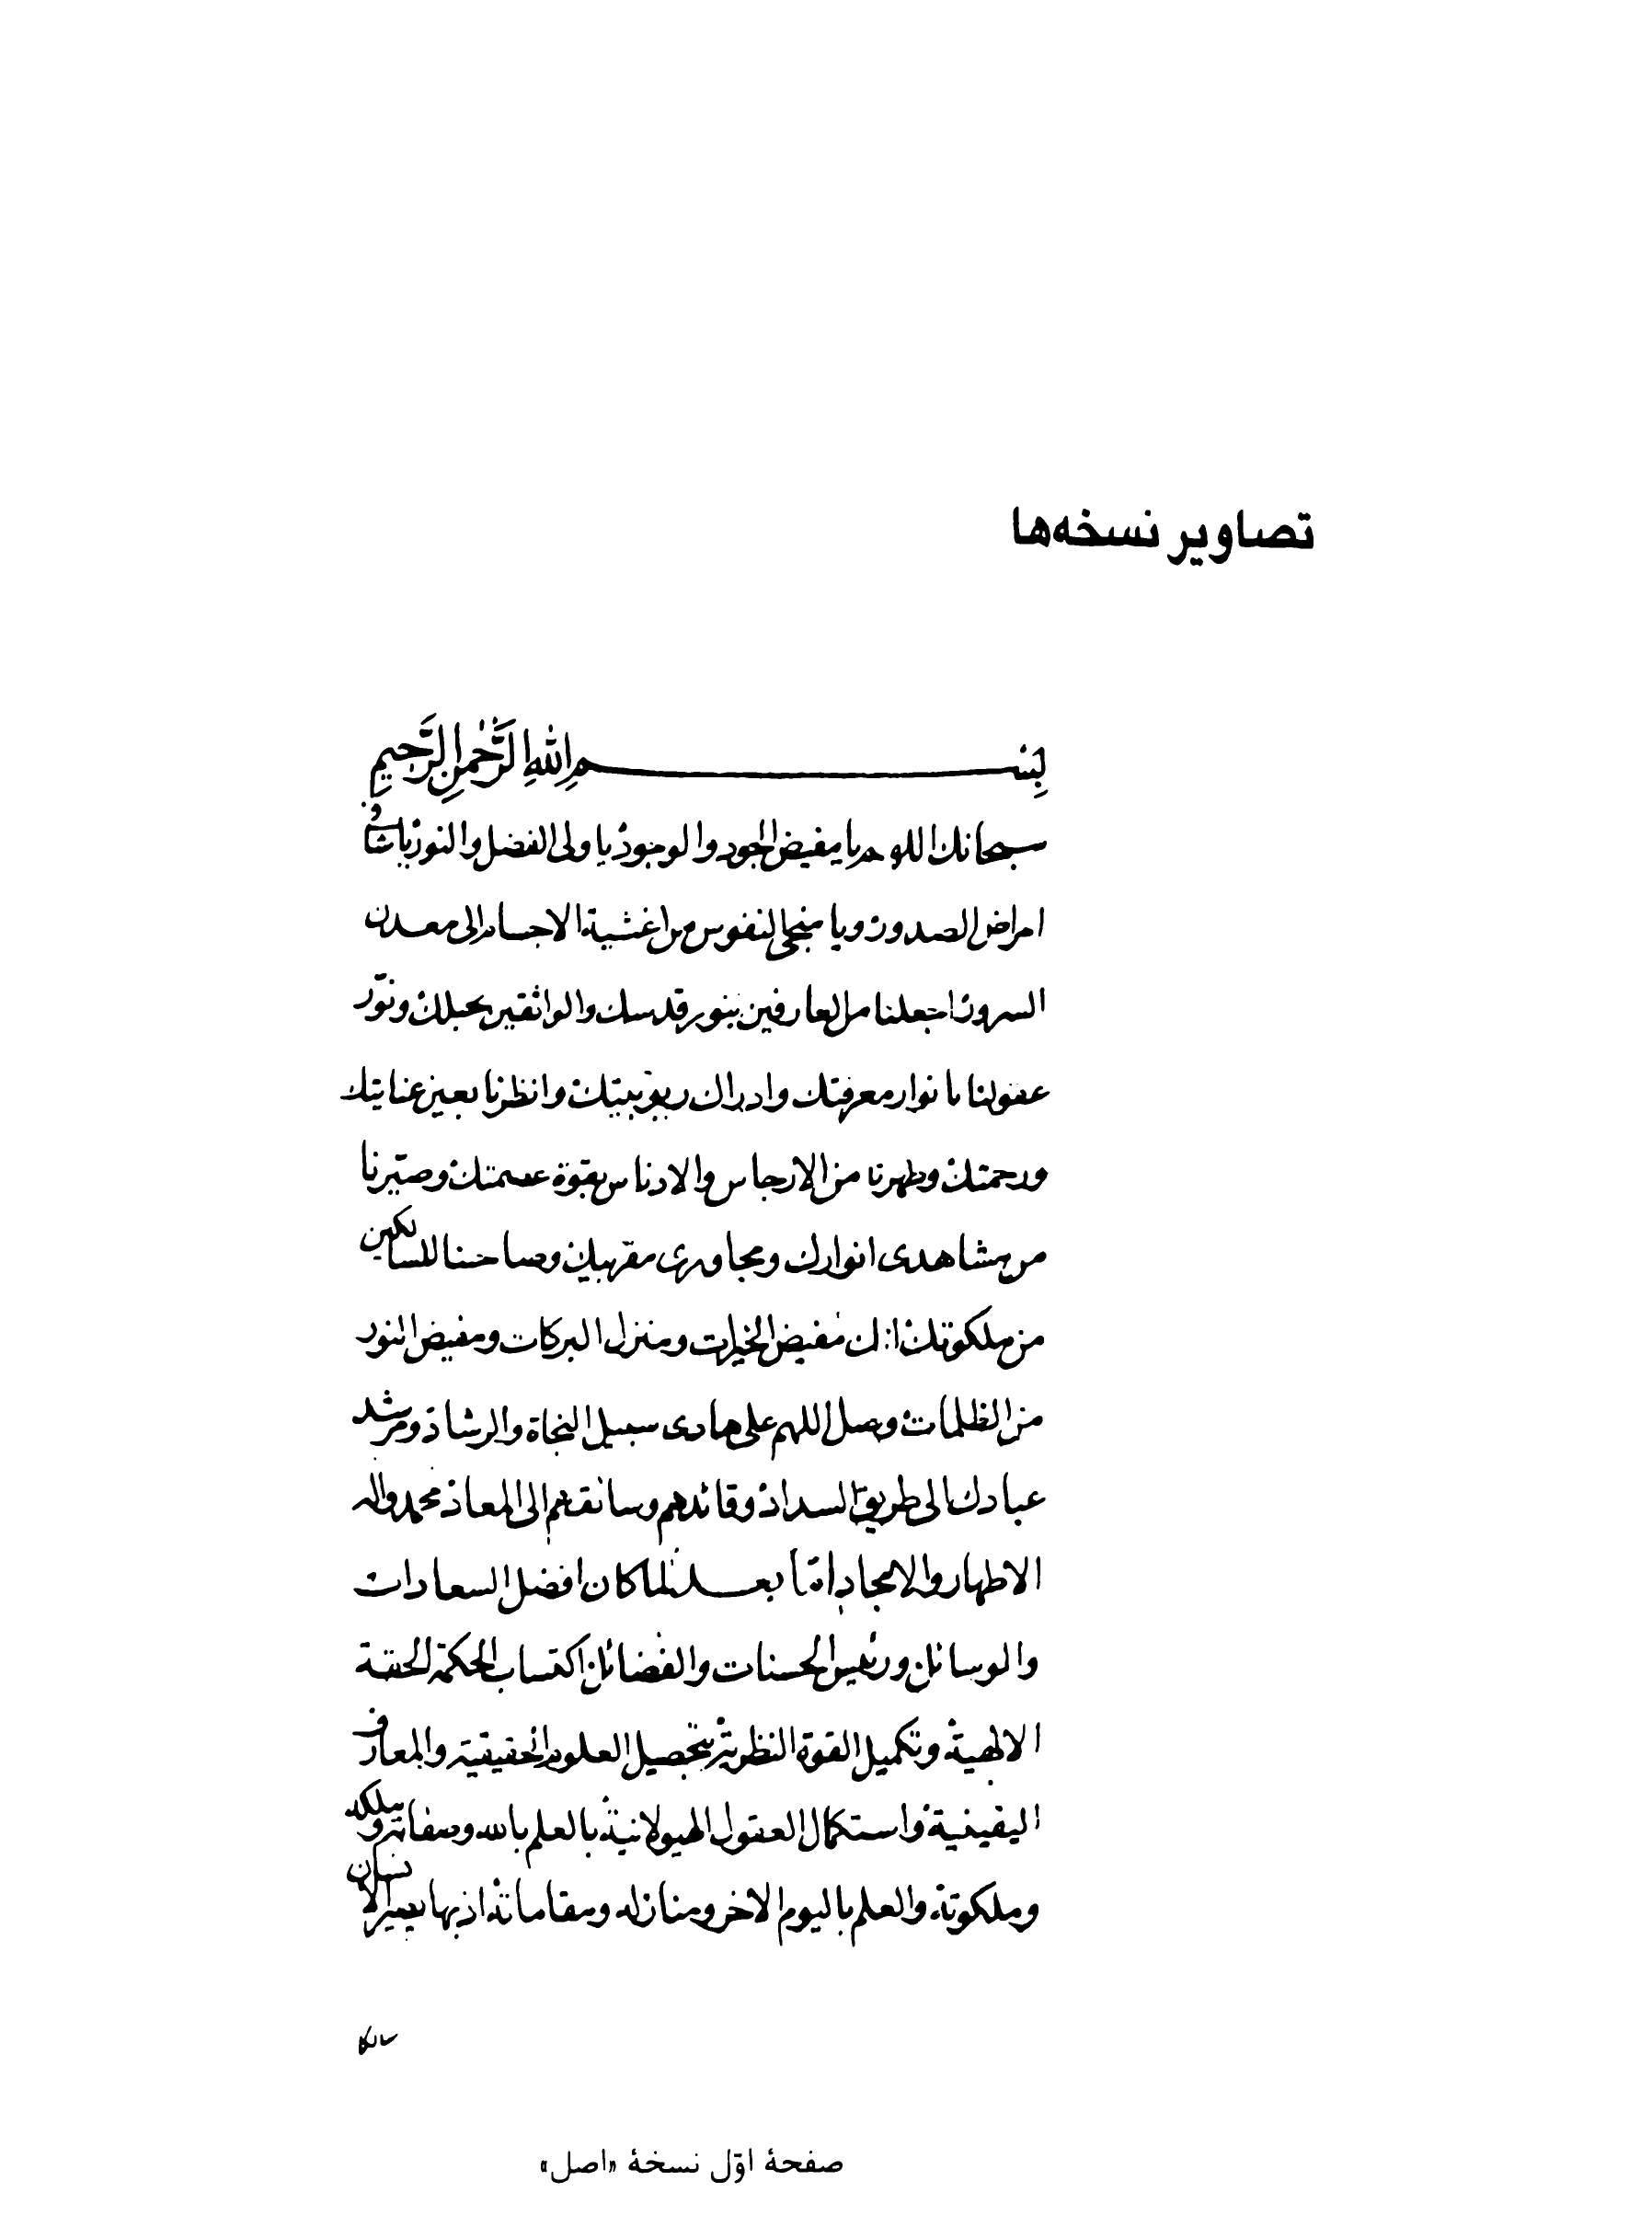 تصاویر نسخه‌ها
بِسْمِ اللهِ الرَّحْمٰنِ الرَّحِيمِ
سبحانك اللهم يا مفيض الجود والوجود يا ولى الفضل والنور يا شافى
امراض الصدور ويا منجى النفوس من اغشية الاجسام الى معدن
السرور اجعلنا من العارفين بنور قدسك والواثقين بحبلك ونوّر
عقولنا بانوار معرفتك وادراك ربوبيتك وانظرنا بعين عنايتك
ورحمتك وطهرنا من الارجاس والادناس بقوة عصمتك وصيّرنا
من مشاهدى انوارك ومجاورى مقربيك ومصاحبنا للسالكين
من ملكوتك انك مفيض الخيرات ومنزل البركات ومفيض النور
من الظلمات وصل اللهم على هادى سبيل النجاة والرشاد ومرشد
عبادك الى طريق السداد وقائدهم وسائقهم الى المعاد محمد واله
الاطهار والامجاد امّا بعد فلما كان افضل السعادات
والوسائل ورئيس الحسنات والفضائل اكتساب الحكمة الحقة
الالهية وتكميل القوة النظرية بتحصيل العلوم الحقيقية والمعارف
اليقينية واستكمال العقول الهيولانية بالعلم بالله وصفاته وملكه
وملكوته والعلم باليوم الاخر ومنازله ومقاماته اذ بها يصير الانسان
سالكا
صفحهٔ اوّل نسخهٔ «اصل»